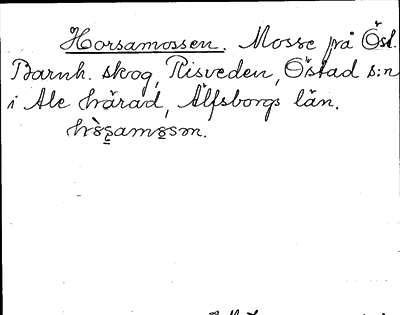 Horsamossen. Mosse på Öst.
Barnh. skog, Risveden, Östad s:n
i Ale härad, Älfsborgs län.